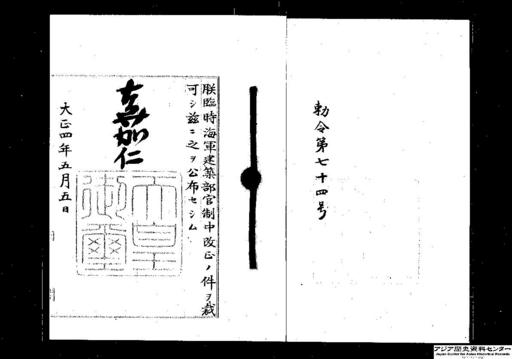 勅令第七十四号
朕臨時海軍建築部官制中改正ノ件ヲ裁
可シ茲ニ之ヲ公布セシム
嘉仁
天皇
御璽
大正四年五月五日
アジア歴史資料センター
Japan Center for Asian Historical Records